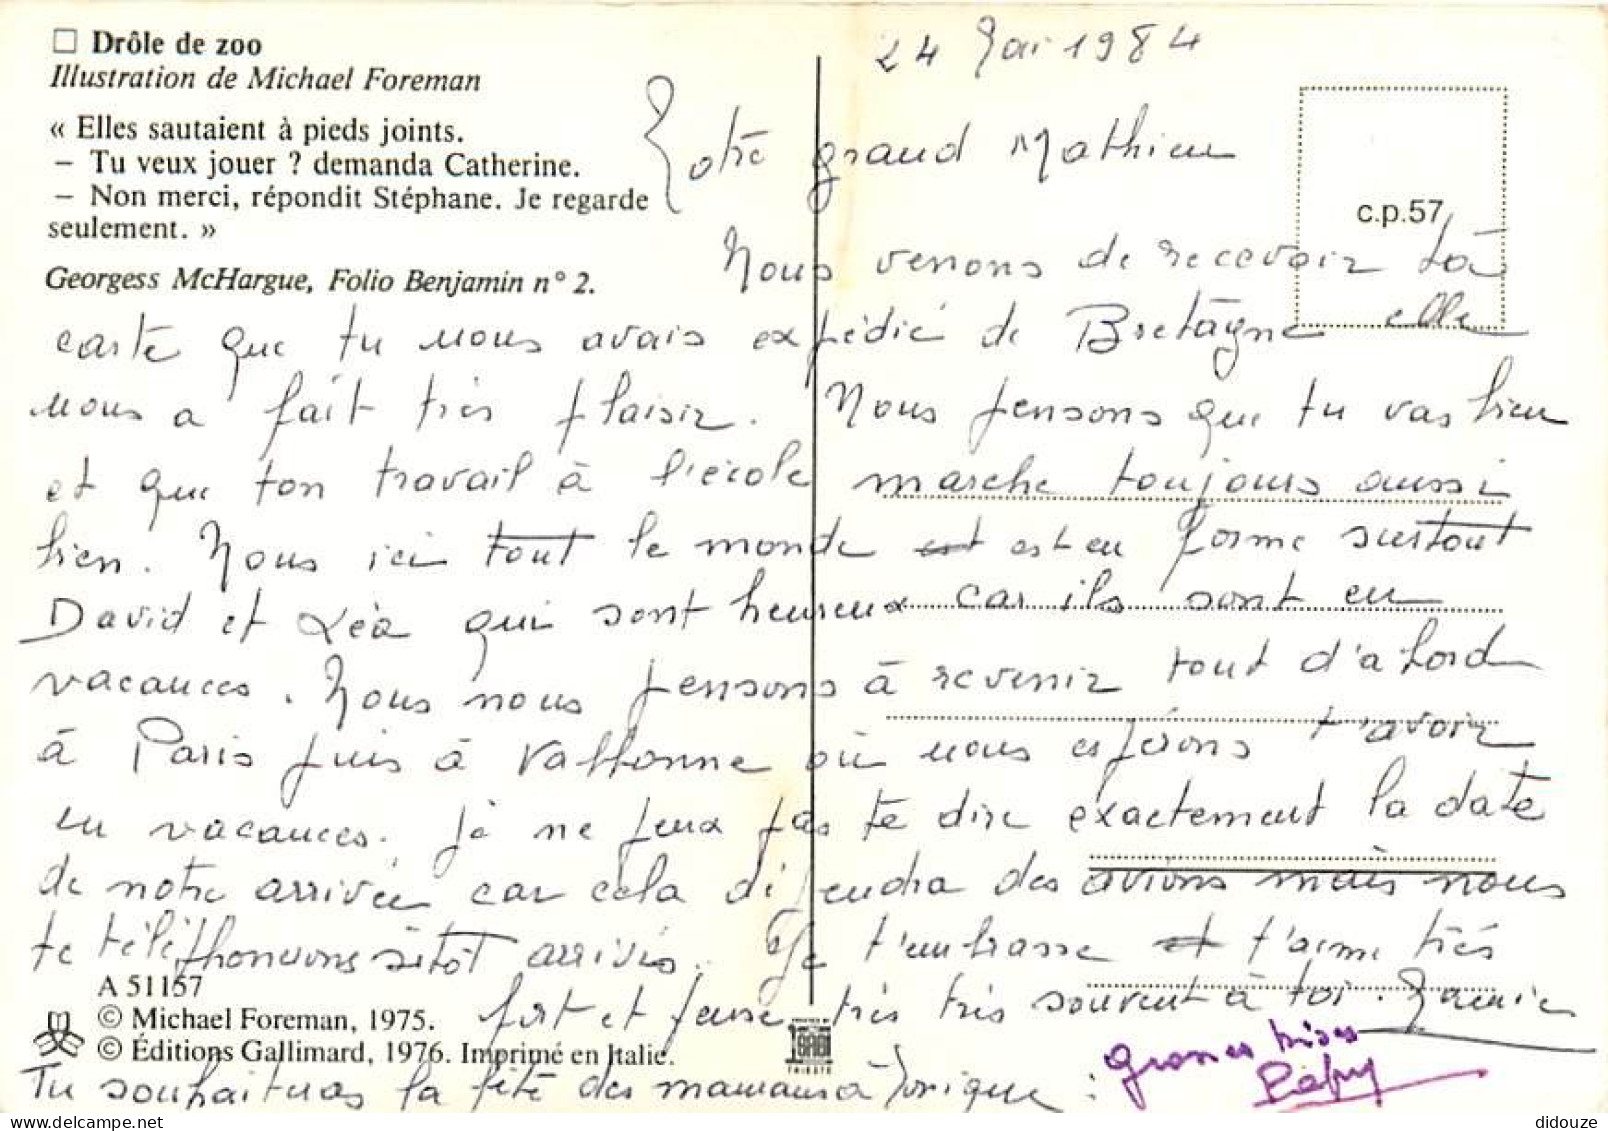 ☐ Drôle de zoo
Illustration de Michael Foreman
« Elles sautaient à pieds joints.
– Tu veux jouer ? demanda Catherine.
– Non merci, répondit Stéphane. Je regarde
seulement. »
Georgess McHargue, Folio Benjamin n° 2.
24 Mai 1984
c.p.57
Notre grand Mathieu
Nous venons de recevoir ta
carte que tu nous avais expédié de Bretagne elle
nous a fait très plaisir. Nous pensons que tu vas bien
et que ton travail à l'école marche toujours aussi
bien. Nous ici tout le monde est en forme surtout
David et Léa qui sont heureux car ils sont en
vacances. Nous nous pensons à revenir tout d'abord
à Paris puis à Valbonne où nous espérons t'avoir
en vacances. Je ne peux pas te dire exactement la date
de notre arrivée car cela dépendra des avions mais nous
te téléphonerons sitôt arrivés. Je t'embrasse t'aime très
fort et pense très très souvent à toi. Mamie
Tu souhaiteras la fête des mamans à :
Grosses bises
Papy
A 51157
© Michael Foreman, 1975.
© Éditions Gallimard, 1976. Imprimé en Italie.
TRIESTE
didouze